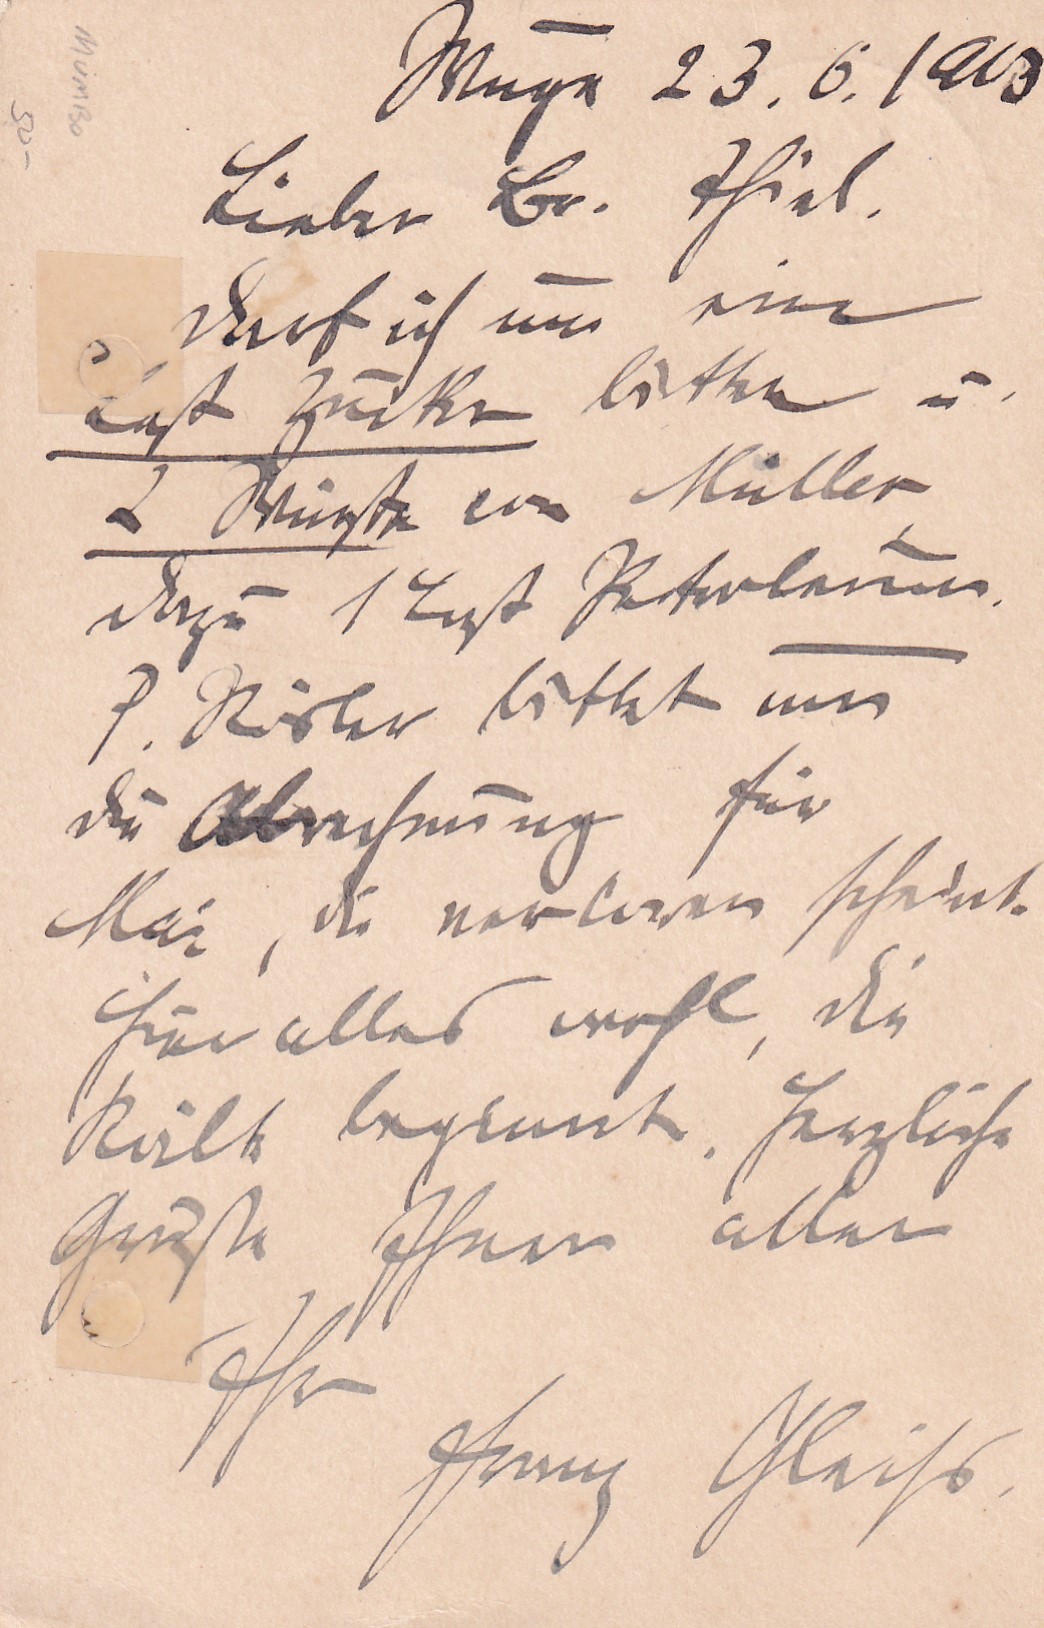 Wuga 23. 6. 1903
Lieber Br. Thiel.
Darf ich um eine
Last Zucker bitten u.
2 Würste von Müller,
dazu 1 Last Petroleum.
P. Rösler bittet um
die Abrechnung für
Mai, die verloren scheint.
Hier alles wohl, die
Kälte beginnt. Herzliche
Grüße Ihnen allen
Ihr
Franz Gleiß.
Mümbo
50-